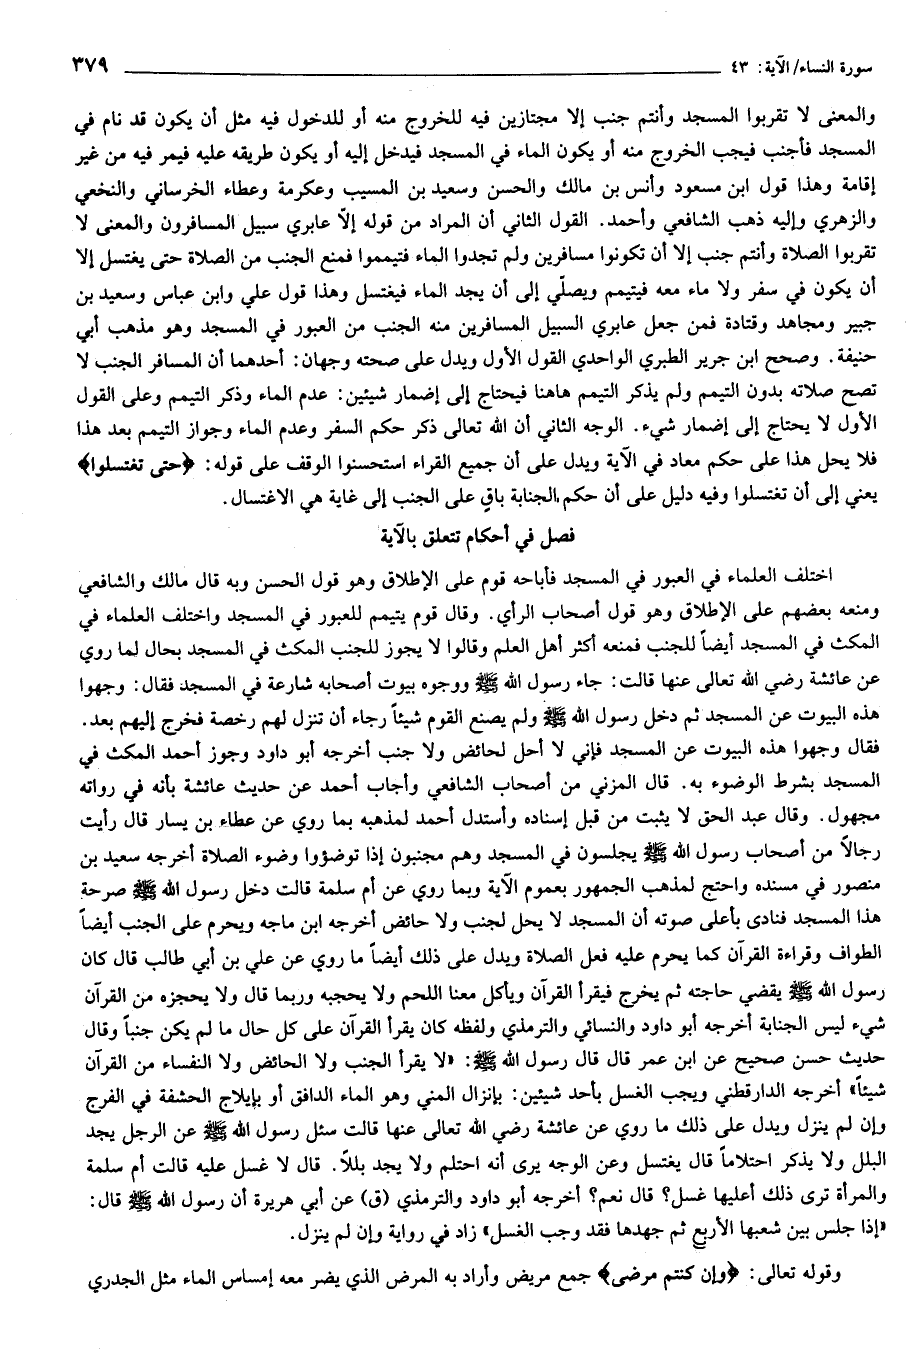 سورة النساء/ الآية: ٤٣ ٣٧٩
والمعنى لا تقربوا المسجد وأنتم جنب إلا مجتازين فيه للخروج منه أو للدخول فيه مثل أن يكون قد نام في
المسجد فأجنب فيجب الخروج منه أو يكون الماء في المسجد فيدخل إليه أو يكون طريقه عليه فيمر فيه من غير
إقامة وهذا قول ابن مسعود وأنس بن مالك والحسن وسعيد بن المسيب وعكرمة وعطاء الخرساني والنخعي
والزهري وإليه ذهب الشافعي وأحمد. القول الثاني أن المراد من قوله إلاّ عابري سبيل المسافرون والمعنى لا
تقربوا الصلاة وأنتم جنب إلا أن تكونوا مسافرين ولم تجدوا الماء فتيمموا فمنع الجنب من الصلاة حتى يغتسل إلا
أن يكون في سفر ولا ماء معه فيتيمم ويصلّي إلى أن يجد الماء فيغتسل وهذا قول علي وابن عباس وسعيد بن
جبير ومجاهد وقتادة فمن جعل عابري السبيل المسافرين منه الجنب من العبور في المسجد وهو مذهب أبي
حنيفة. وصحح ابن جرير الطبري الواحدي القول الأول ويدل على صحته وجهان: أحدهما أن المسافر الجنب لا
تصح صلاته بدون التيمم ولم يذكر التيمم هاهنا فيحتاج إلى إضمار شيئين: عدم الماء وذكر التيمم وعلى القول
الأول لا يحتاج إلى إضمار شيء. الوجه الثاني أن الله تعالى ذكر حكم السفر وعدم الماء وجواز التيمم بعد هذا
فلا يحل هذا على حكم معاد في الآية ويدل على أن جميع القراء استحسنوا الوقف على قوله: ﴿حتى تغتسلوا﴾
يعني إلى أن تغتسلوا وفيه دليل على أن حكم الجنابة باقٍ على الجنب إلى غاية هي الاغتسال.
فصل في أحكام تتعلق بالآية
اختلف العلماء في العبور في المسجد فأباحه قوم على الإطلاق وهو قول الحسن وبه قال مالك والشافعي
ومنعه بعضهم على الإطلاق وهو قول أصحاب الرأي. وقال قوم يتيمم للعبور في المسجد واختلف العلماء في
المكث في المسجد أيضاً للجنب فمنعه أكثر أهل العلم وقالوا لا يجوز للجنب المكث في المسجد بحال لما روي
عن عائشة رضي الله تعالى عنها قالت: جاء رسول الله ﷺ ووجوه بيوت أصحابه شارعة في المسجد فقال: وجهوا
هذه البيوت عن المسجد ثم دخل رسول الله ﷺ ولم يصنع القوم شيئاً رجاء أن تنزل لهم رخصة فخرج إليهم بعد.
فقال وجهوا هذه البيوت عن المسجد فإني لا أحل لحائض ولا جنب أخرجه أبو داود وجوز أحمد المكث في
المسجد بشرط الوضوء به. قال المزني من أصحاب الشافعي وأجاب أحمد عن حديث عائشة بأنه في رواته
مجهول. وقال عبد الحق لا يثبت من قبل إسناده وأستدل أحمد لمذهبه بما روي عن عطاء بن يسار قال رأيت
رجالاً من أصحاب رسول الله ﷺ يجلسون في المسجد وهم مجنبون إذا توضؤوا وضوء الصلاة أخرجه سعيد بن
منصور في مسنده واحتج لمذهب الجمهور بعموم الآية وبما روي عن أم سلمة قالت دخل رسول الله ﷺ صرحة
هذا المسجد فنادى بأعلى صوته أن المسجد لا يحل لجنب ولا حائض أخرجه ابن ماجه ويحرم على الجنب أيضاً
الطواف وقراءة القرآن كما يحرم عليه فعل الصلاة ويدل على ذلك أيضاً ما روي عن علي بن أبي طالب قال كان
رسول الله ﷺ يقضي حاجته ثم يخرج فيقرأ القرآن ويأكل معنا اللحم ولا يحجبه وربما قال ولا يحجزه من القرآن
شيء ليس الجنابة أخرجه أبو داود والنسائي والترمذي ولفظه كان يقرأ القرآن على كل حال ما لم يكن جنباً وقال
حديث حسن صحيح عن ابن عمر قال قال رسول الله ﷺ: «لا يقرأ الجنب ولا الحائض ولا النفساء من القرآن
شيئاً» أخرجه الدارقطني ويجب الغسل بأحد شيئين: بإنزال المني وهو الماء الدافق أو بإيلاج الحشفة في الفرج
وإن لم ينزل ويدل على ذلك ما روي عن عائشة رضي الله تعالى عنها قالت سئل رسول الله ﷺ عن الرجل يجد
البلل ولا يذكر احتلاماً قال يغتسل وعن الوجه يرى أنه احتلم ولا يجد بللاً. قال لا غسل عليه قالت أم سلمة
والمرأة ترى ذلك أعليها غسل؟ قال نعم؟ أخرجه أبو داود والترمذي (ق) عن أبي هريرة أن رسول الله ﷺ قال:
«إذا جلس بين شعبها الأربع ثم جهدها فقد وجب الغسل» زاد في رواية وإن لم ينزل.
وقوله تعالى: ﴿وإن كنتم مرضى﴾ جمع مريض وأراد به المرض الذي يضر معه إمساس الماء مثل الجدري